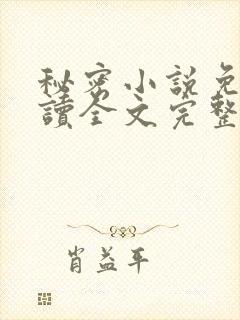 秘密小說免
讀全文完整
肖益平